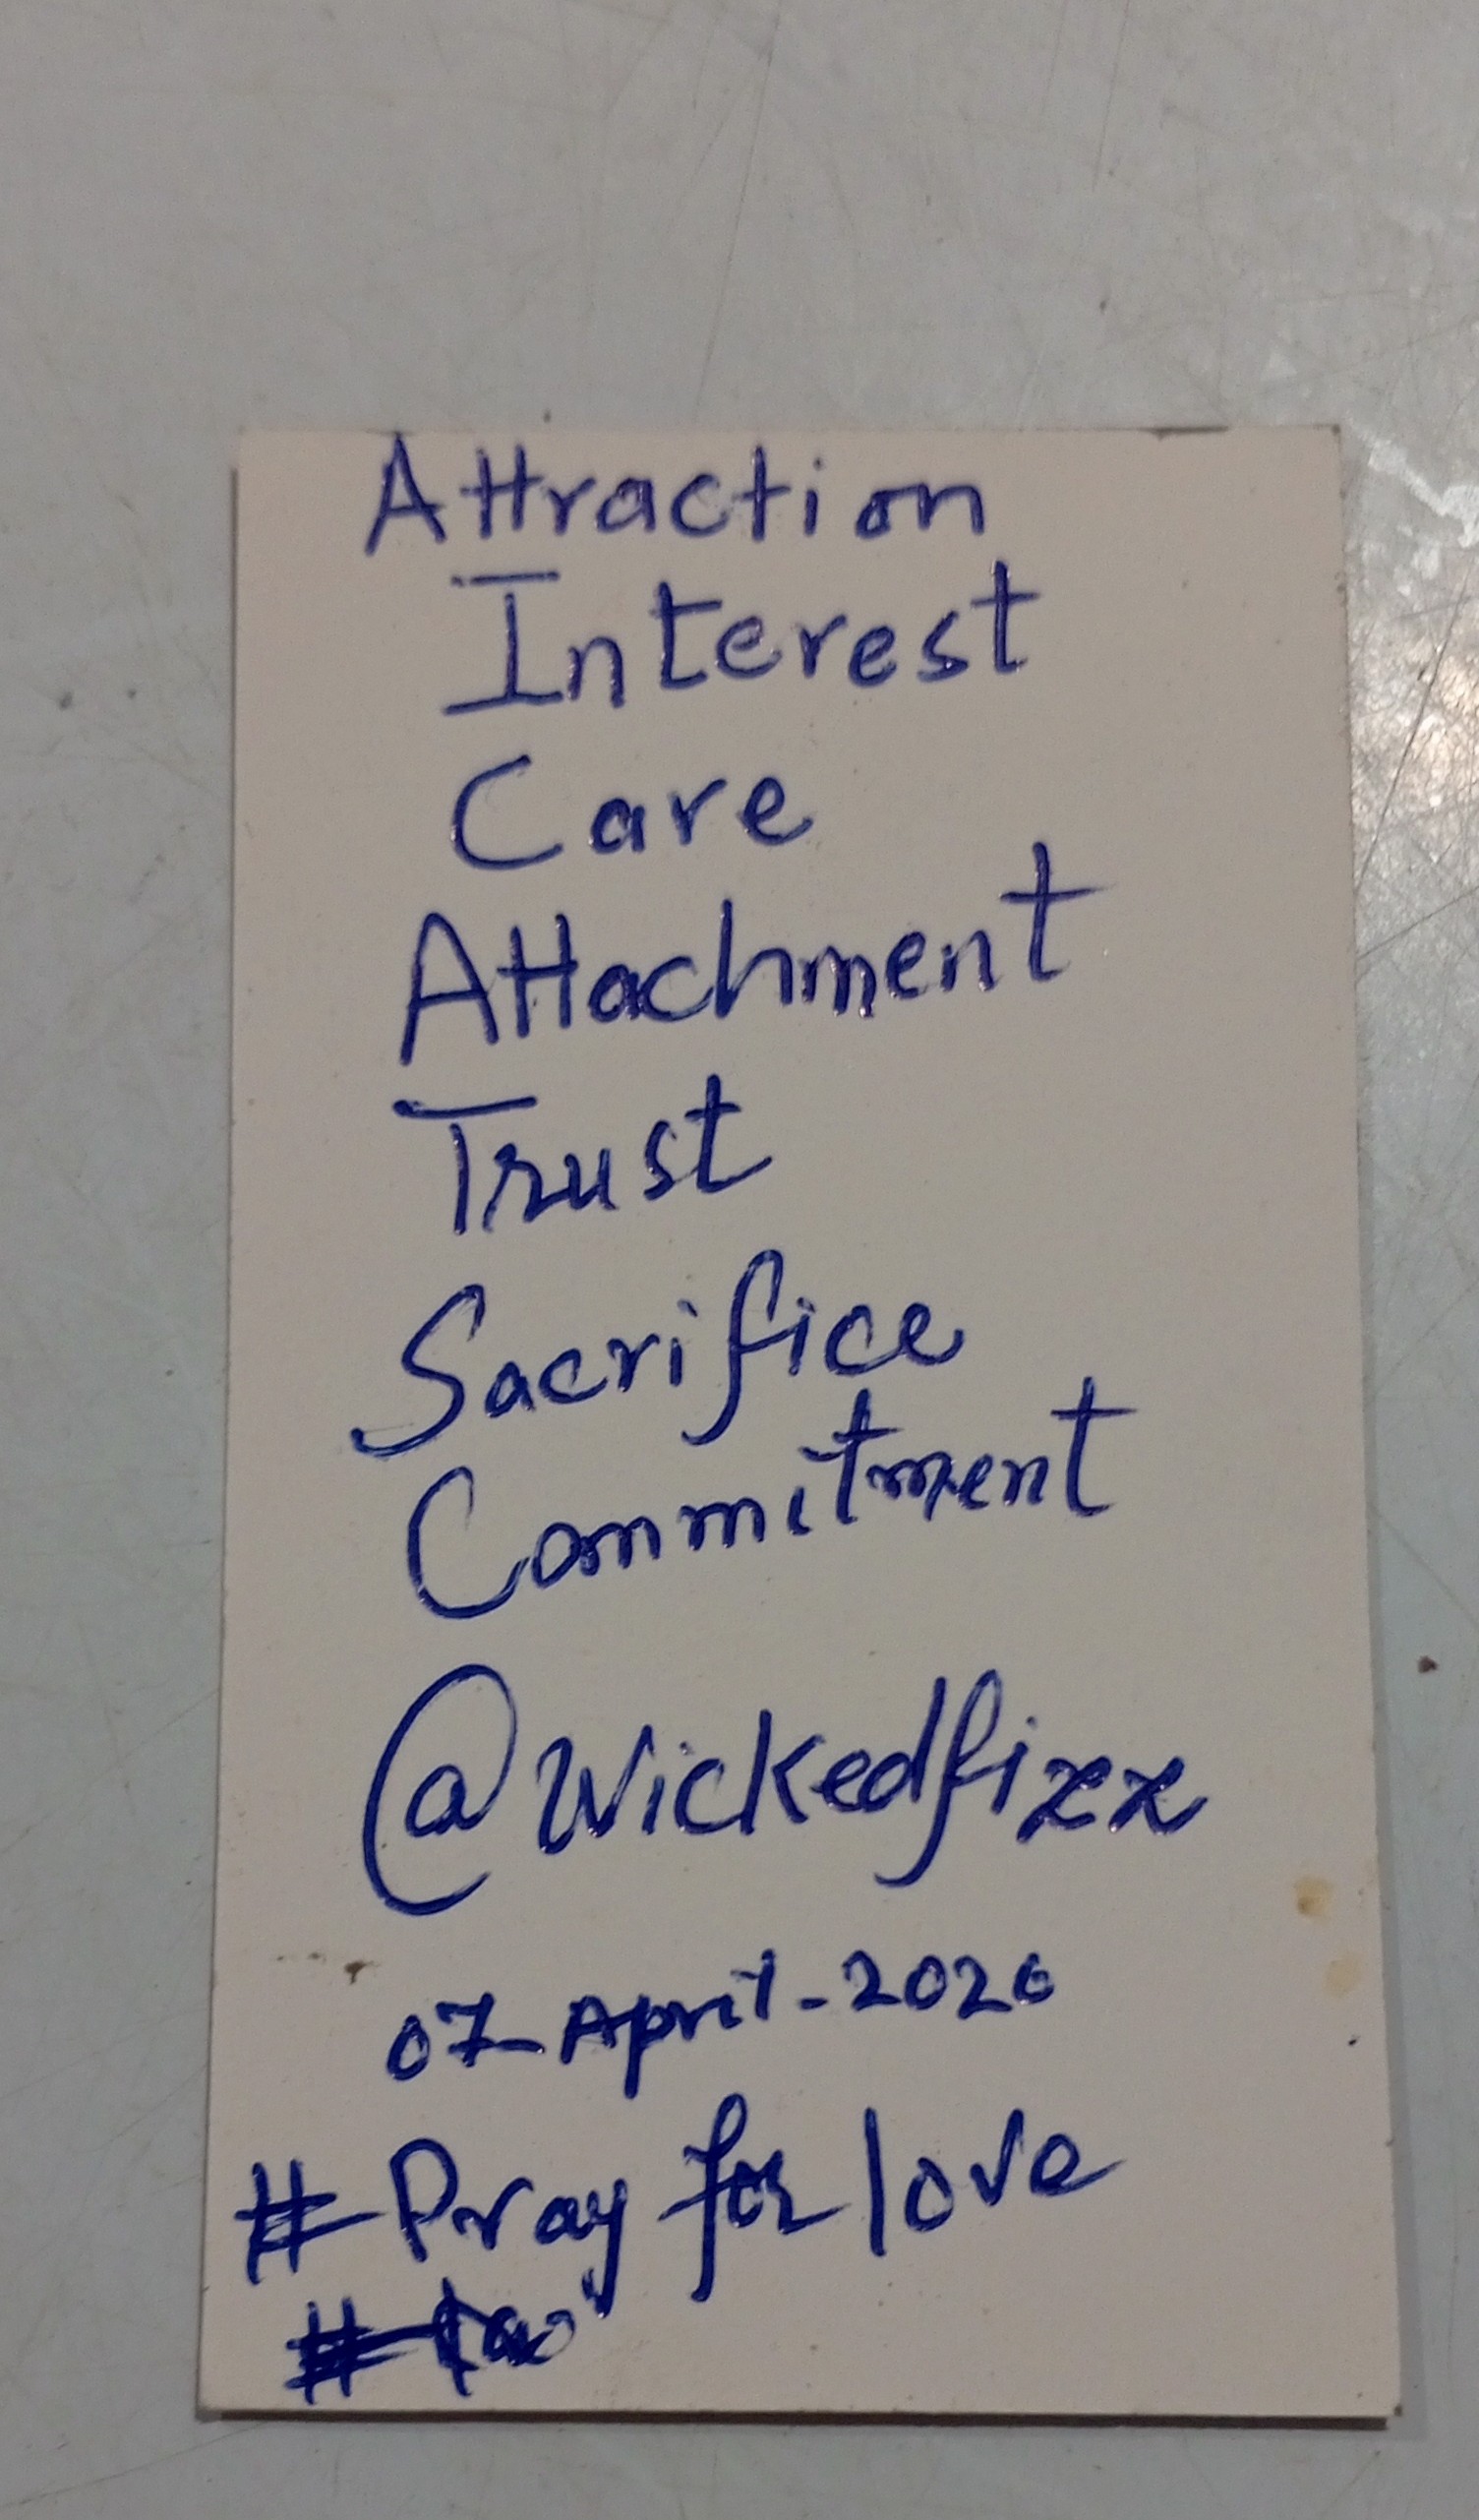 Attraction
Interest
Care
Attachment
Trust
Sacrifice
Commitment
@wickedfixx
07-April-2020
#Pray for love
#